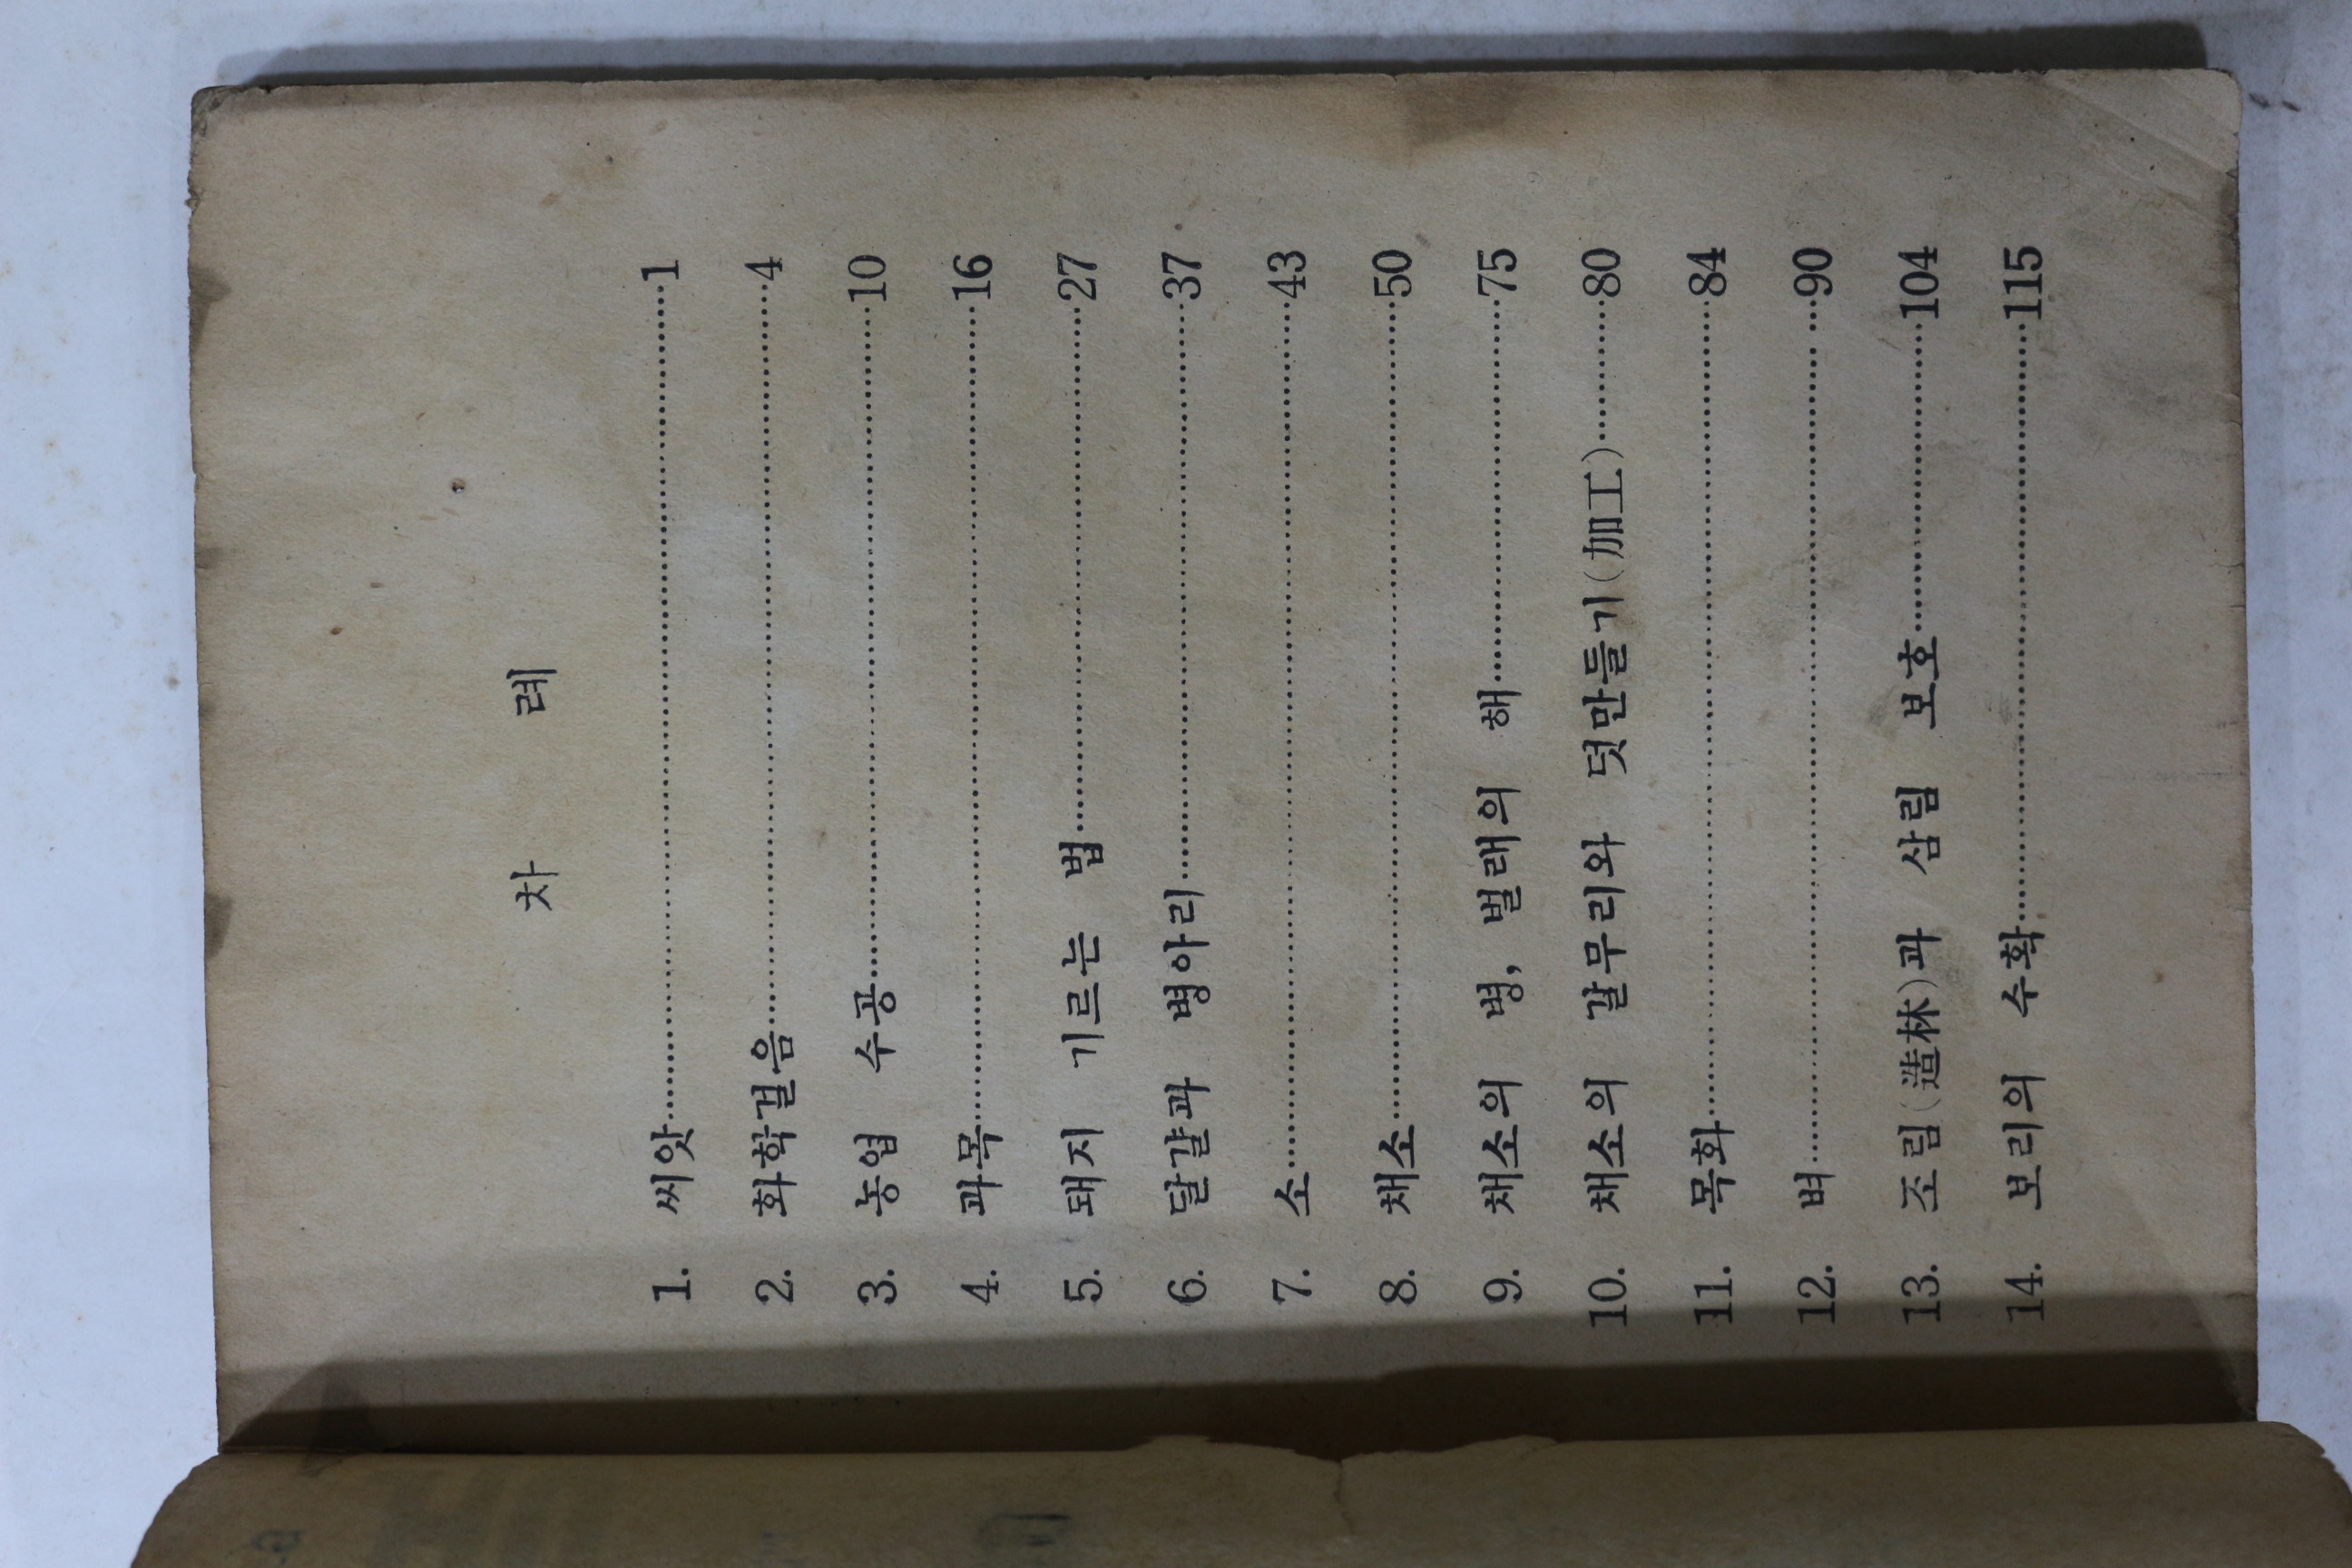 차 례
1. 씨앗……………………………1
2. 화학걸음……………………………4
3. 농업 수공……………………………10
4. 과목……………………………16
5. 돼지 기르는 법……………………………27
6. 달걀과 병아리……………………………37
7. 소……………………………43
8. 채소……………………………50
9. 채소의 병, 벌래의 해……………………………75
10. 채소의 갈무리와 덧만들기(加工)…………80
11. 목화……………………………84
12. 벼……………………………90
13. 조림(造林)과 삼림 보호……………………104
14. 보리의 수확……………………………115